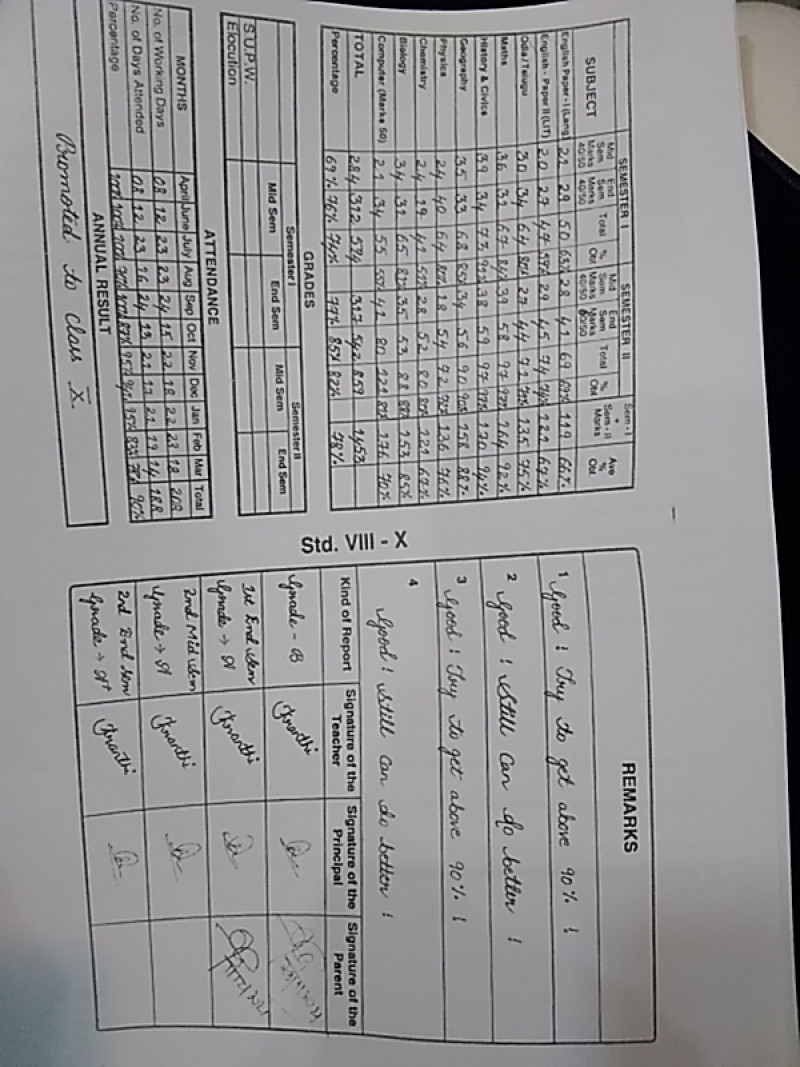 SUBJECT
SEMESTER I
SEMESTER II
Sem - I + Sem - II Marks
Ave % Obt
Mid Sem Marks 40/50
End Sem Marks 40/50
Total
% Obt
Mid Sem Marks 40/50
End Sem Marks
Total
% Obt
English Paper - I (Lang) 21 29 50 63% 28 41 69 69% 119 66%
English - Paper II (LIT) 20 27 47 29 45 74 74% 121 67%
Odia / Telugu 30 34 64 80% 27 44 71 71% 135 75%
Maths 36 31 67 84% 39 58 97 97% 164 92%
History & Civics 39 34 73 38 59 97 97% 170 94%
Geography 35 33 68 85% 34 56 90 90% 158 88%
Physics 24 40 64 80% 18 54 72 72% 136 76%
Chemistry 24 41 28 52 80 80% 121 67%
Biology 34 31 65 81% 35 53 88 88% 153 85%
Computer (Marks 50) 21 34 55 55% 41 80 121 176 70%
TOTAL 284 312 317 542 859 1453
Percentage 69% 76% 74% 77% 85% 82% 78%
GRADES
Semester I
Semester II
Mid Sem
End Sem
Mid Sem
End Sem
S.U.P.W.
Elocution
ATTENDANCE
MONTHS April June July Aug Sep Oct Nov Dec Jan Feb Mar Total
No. of Working Days 08 12 23 23 24 15 22 18 22 23 18 208
No. of Days Attended 08 12 23 16 24 13 21 17 21 19 14 188
Percentage 100% 100% 100% 100% 87% 95% 95% 83% 90%
ANNUAL RESULT
Promoted to class X.
Std. VIII - X
REMARKS
1 Good ! Try to get above 90% !
2 Good ! Still can do better !
3 Good ! Try to get above 90% !
4 Good ! Still can do better !
Kind of Report
Signature of the Teacher
Signature of the Principal
Signature of the Parent
Grade - B
1st End Sem
Grade → A
2nd Mid Sem
Grade → A
2nd End Sem
Grade → A+